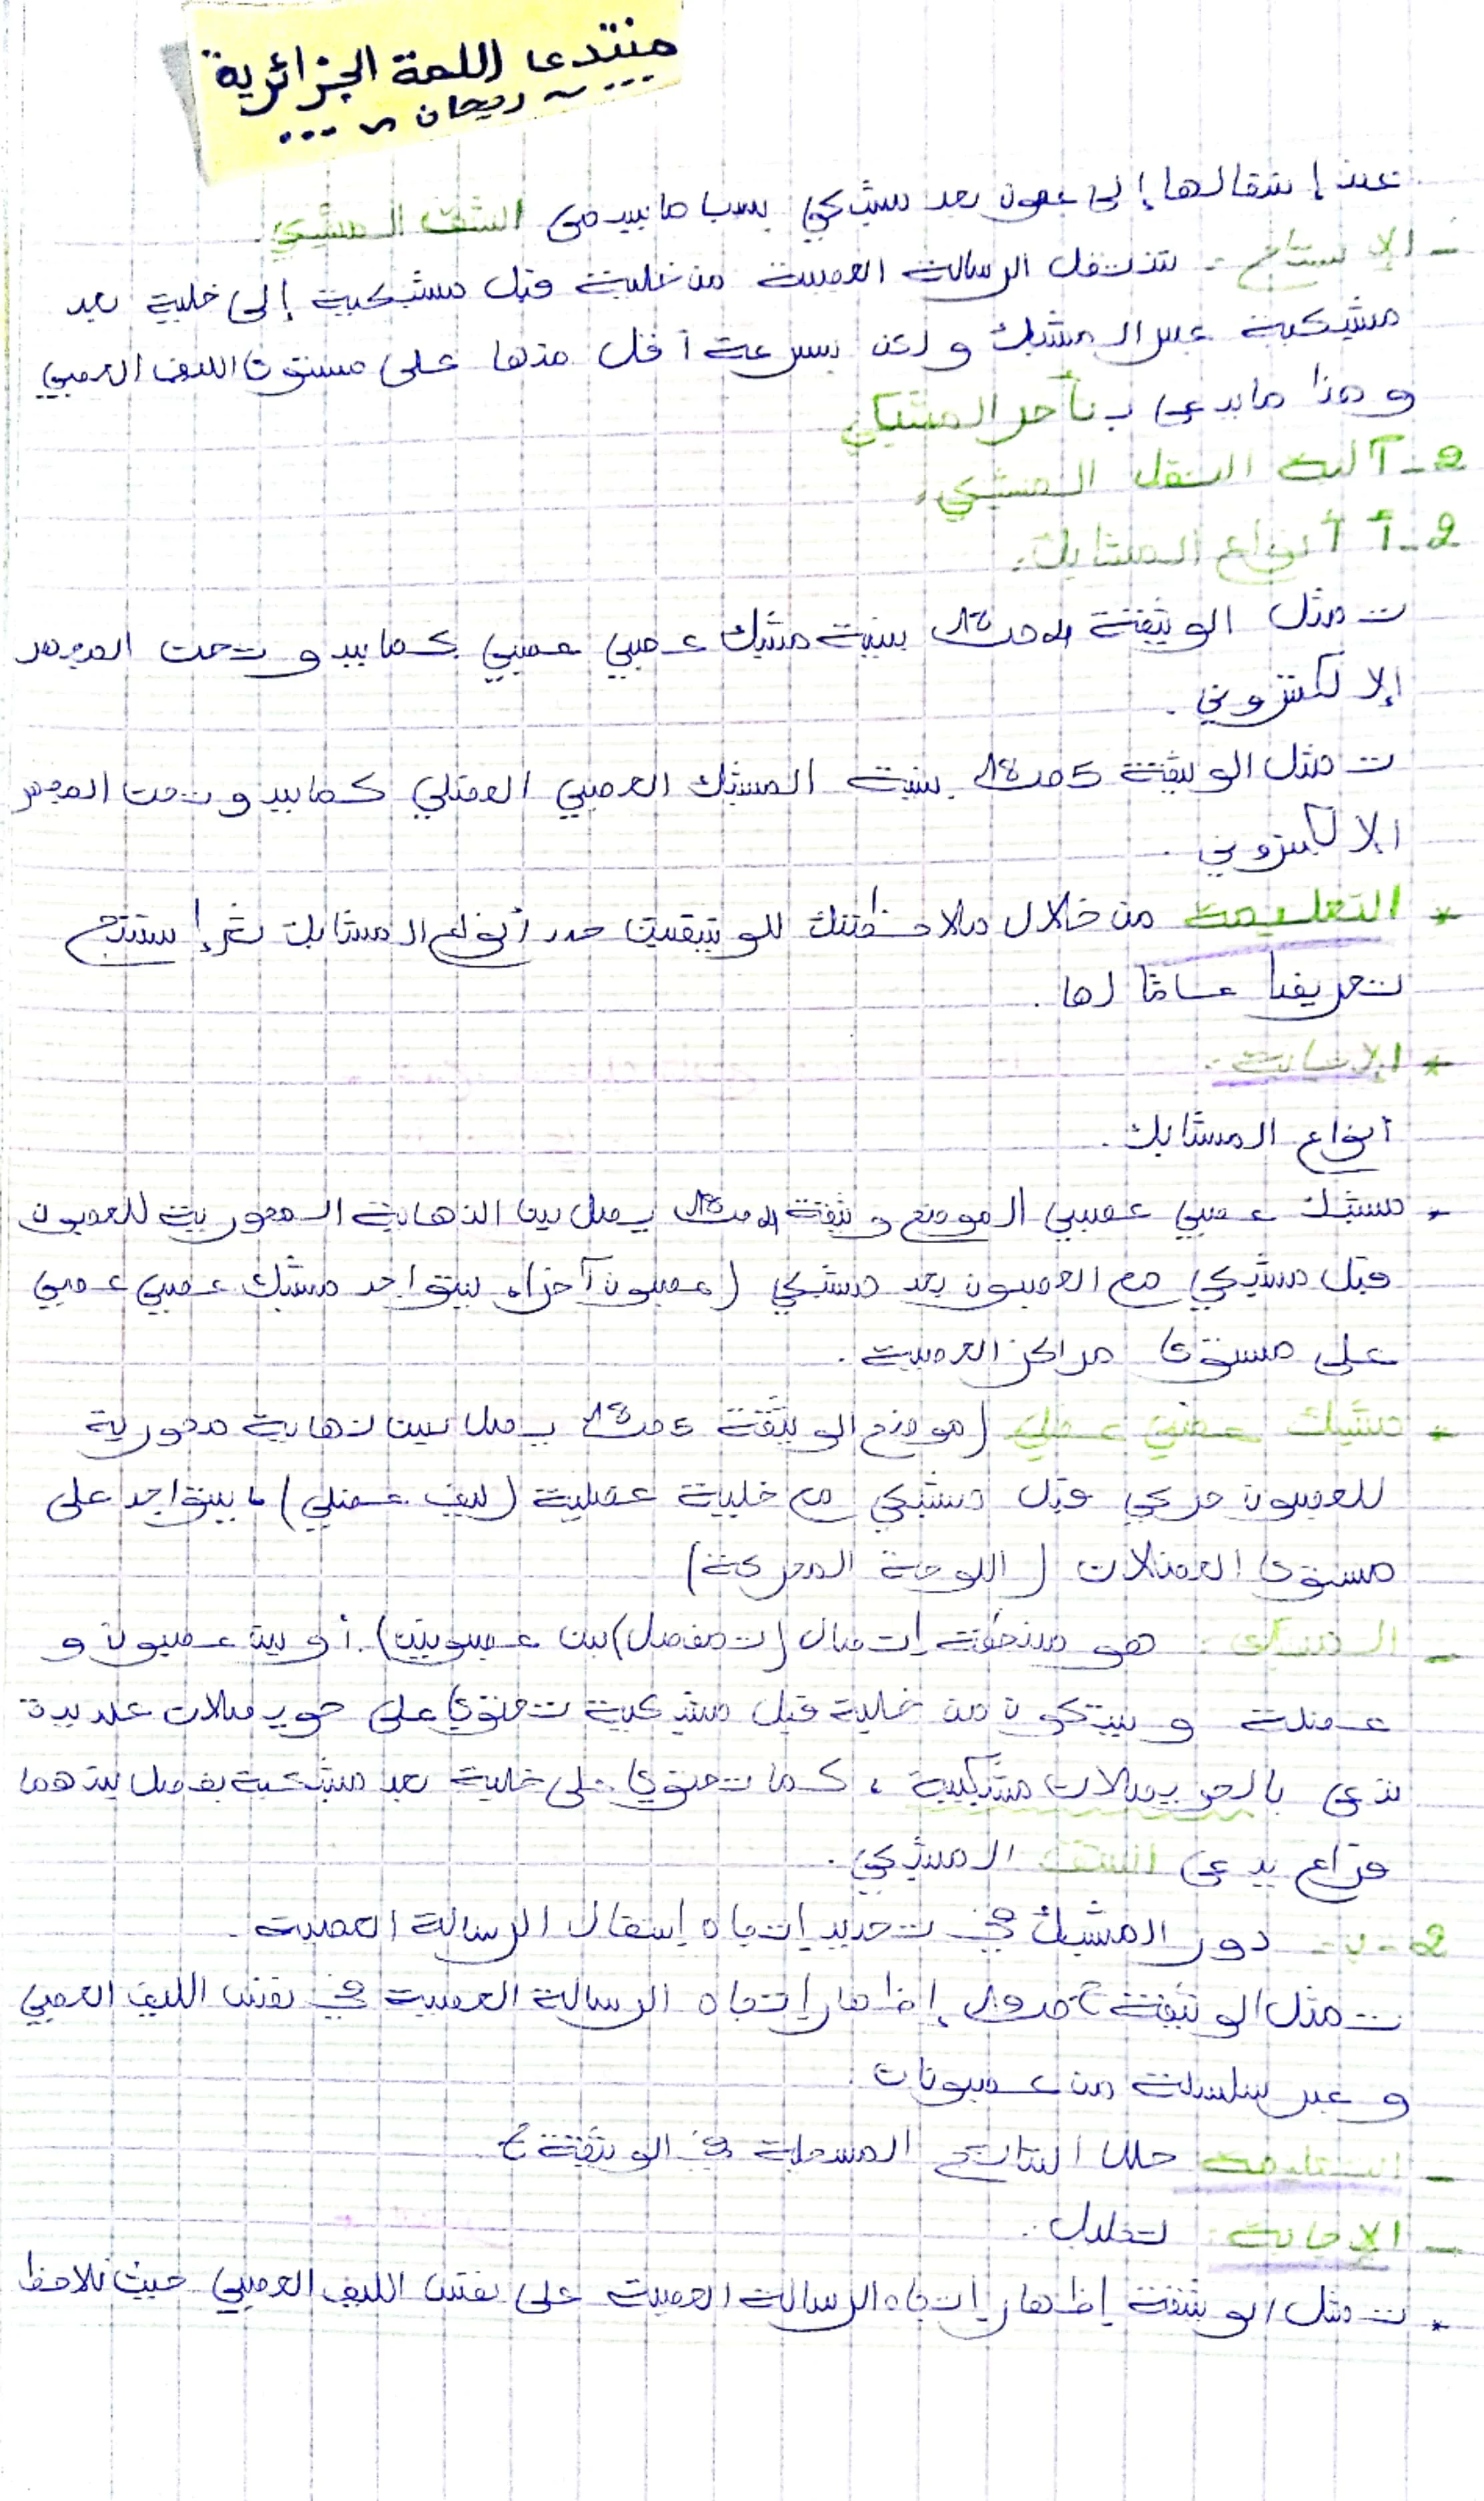 منتدى اللمة الجزائرية
... ~ ريحان ~ ...
عند إنتقالها إلى عصبون بعد مشبكي بسبب ما يسمى الشق المشبكي.
- الإستنتاج: تنتقل الرسالة العصبية من خلية قبل مشبكية إلى خلية بعد
مشبكية عبر المشبك ولكن بسرعة أقل منها على مستوى الليف العصبي
وهذا ما يدعى بـ تأخر المشبكي
2- آلية النقل المشبكي.
2-أ أنواع المشابك:
تمثل الوثيقة 4 ص 18 بنية مشبك عصبي عصبي كما يبدو تحت المجهر
إلالكتروني.
تمثل الوثيقة 5 ص 18 بنية المشبك العصبي العضلي كما يبدو تحت المجهر
الالكتروني
* التعليمة من خلال ملاحظتك للوثيقتين حدد أنواع المشابك ثم إستنتج
تعريفا عاما لها.
* الإجابة:
أنواع المشابك.
* مشبك عصبي عصبي الموضح وثيقة 4 ص 18 يصل بين النهاية المحورية للعصبون
قبل مشبكي مع العصبون بعد مشبكي (عصبون آخر)، يتواجد مشبك عصبي عصبي
على مستوى مراكز العصبية.
* مشبك عصبي عضلي (موضح الوثيقة 5 ص 18 يصل بين نهاية محورية
للعصبون حركي قبل مشبكي مع خلية عضلية (ليف عضلي)، يتواجد على
مستوى العضلات (اللوحة المحركة)
- المشبك: هو منطقة إتصال (تمفصل) بين عصبونين). أو بين عصبون و
عضلة ويتكون من خلية قبل مشبكية تحتوي على حويصلات عديدة
تدعى بالحويصلات مشبكية، كما تحتوي على خلية بعد مشبكية يفصل بينهما
فراغ يدعى الشق المشبكي.
2-ب- دور المشبك في تحديد إتجاه إنتقال الرسالة العصبية.
تمثل الوثيقة 6 ص 19 إظهار إتجاه الرسالة العصبية في نفس الليف العصبي
وعبر سلسلة من عصبونات
- التعليمة حلل النتائج المسجلة في الوثيقة 6
- الإجابة: تحليل:
* تمثل الوثيقة إظهار إتجاه الرسالة العصبية على نفس الليف العصبي حيث نلاحظ